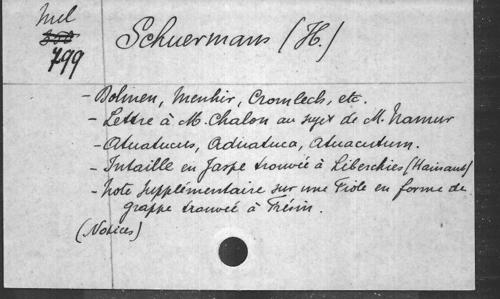 Mel
350
799
Schuermans (H.)
- Dolmen, Menhir, Cromlech, etc.
- Lettre à M. Chalon au sujet de M. Namur
- Atuatucus, Aduatuca, Atuacutum.
- Intaille en Jaspe trouvée à Liberchies (Hainaut)
- Note supplémentaire sur une Fiole en forme de
grappe trouvée à Frésin.
(Notices)